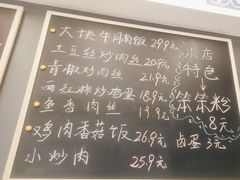 大块牛腩饭 29.9元
土豆丝炒肉丝 20元
青椒炒肉丝 21.9元
西红柿炒鸡蛋 18.9元
鱼香肉丝 19.9元
鸡肉香菇饭 26.9元
小炒肉 25.9元
本店
特色
笨笨粉
8元
卤蛋 3元